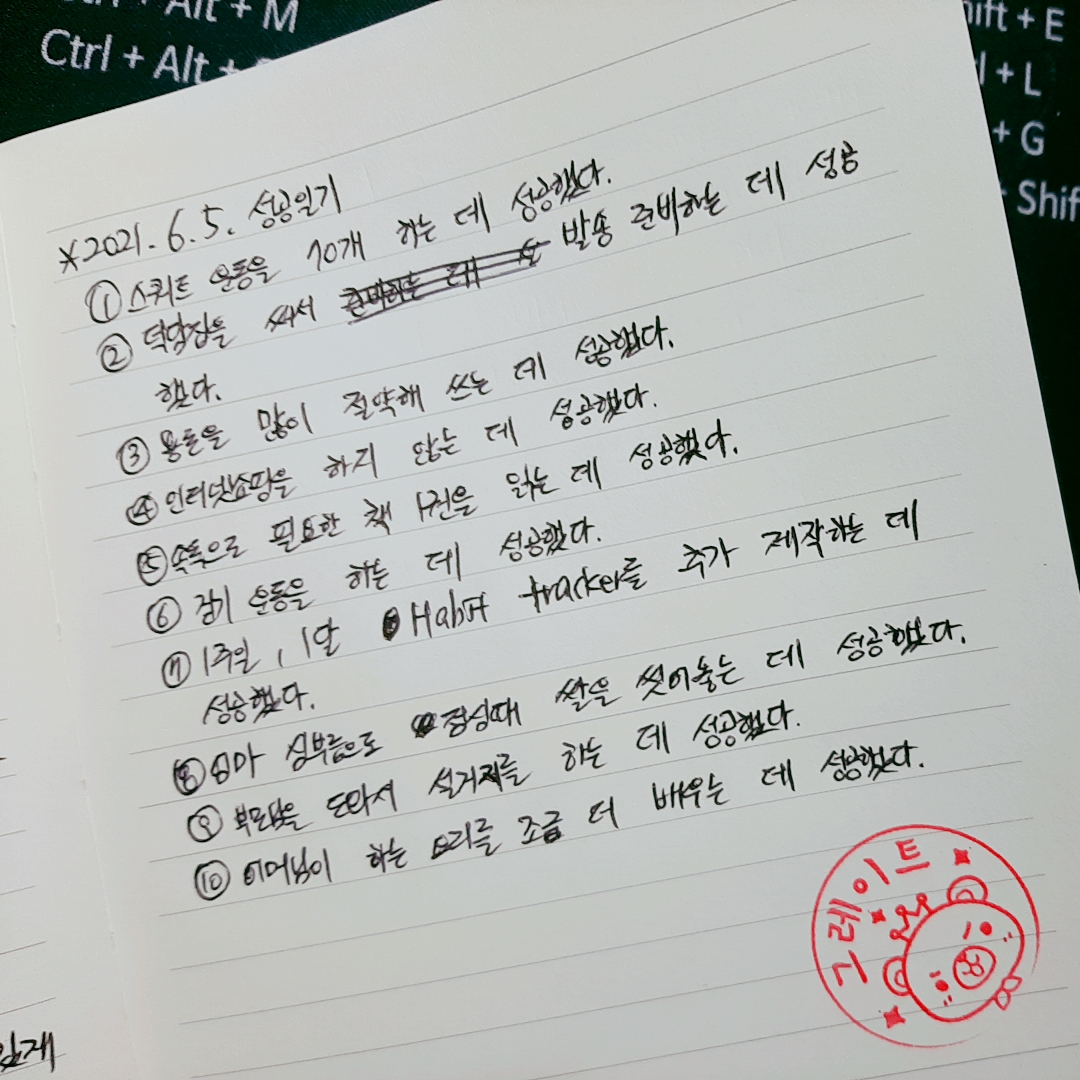 Alt + M
Ctrl + Alt +
ift + E
+ L
+ G
Shif
*2021. 6. 5. 성공일기
① 스쿼트 운동을 10개 하는 데 성공했다.
② 덕담집을 써서 발송 준비하는 데 성공
했다.
③ 용돈을 많이 절약해 쓰는 데 성공했다.
④ 인터넷쇼핑을 하지 않는 데 성공했다.
⑤ 속독으로 필요한 책 1권을 읽는 데 성공했다.
⑥ 걷기 운동을 하는 데 성공했다.
⑦ 1주일, 1달 Habit tracker를 추가 제작하는 데
성공했다.
⑧ 엄마 심부름으로 점심때 쌀을 씻어놓는 데 성공했다.
⑨ 부모님을 도와서 설거지를 하는 데 성공했다.
⑩ 어머님이 하는 요리를 조금 더 배우는 데 성공했다.
그레이트